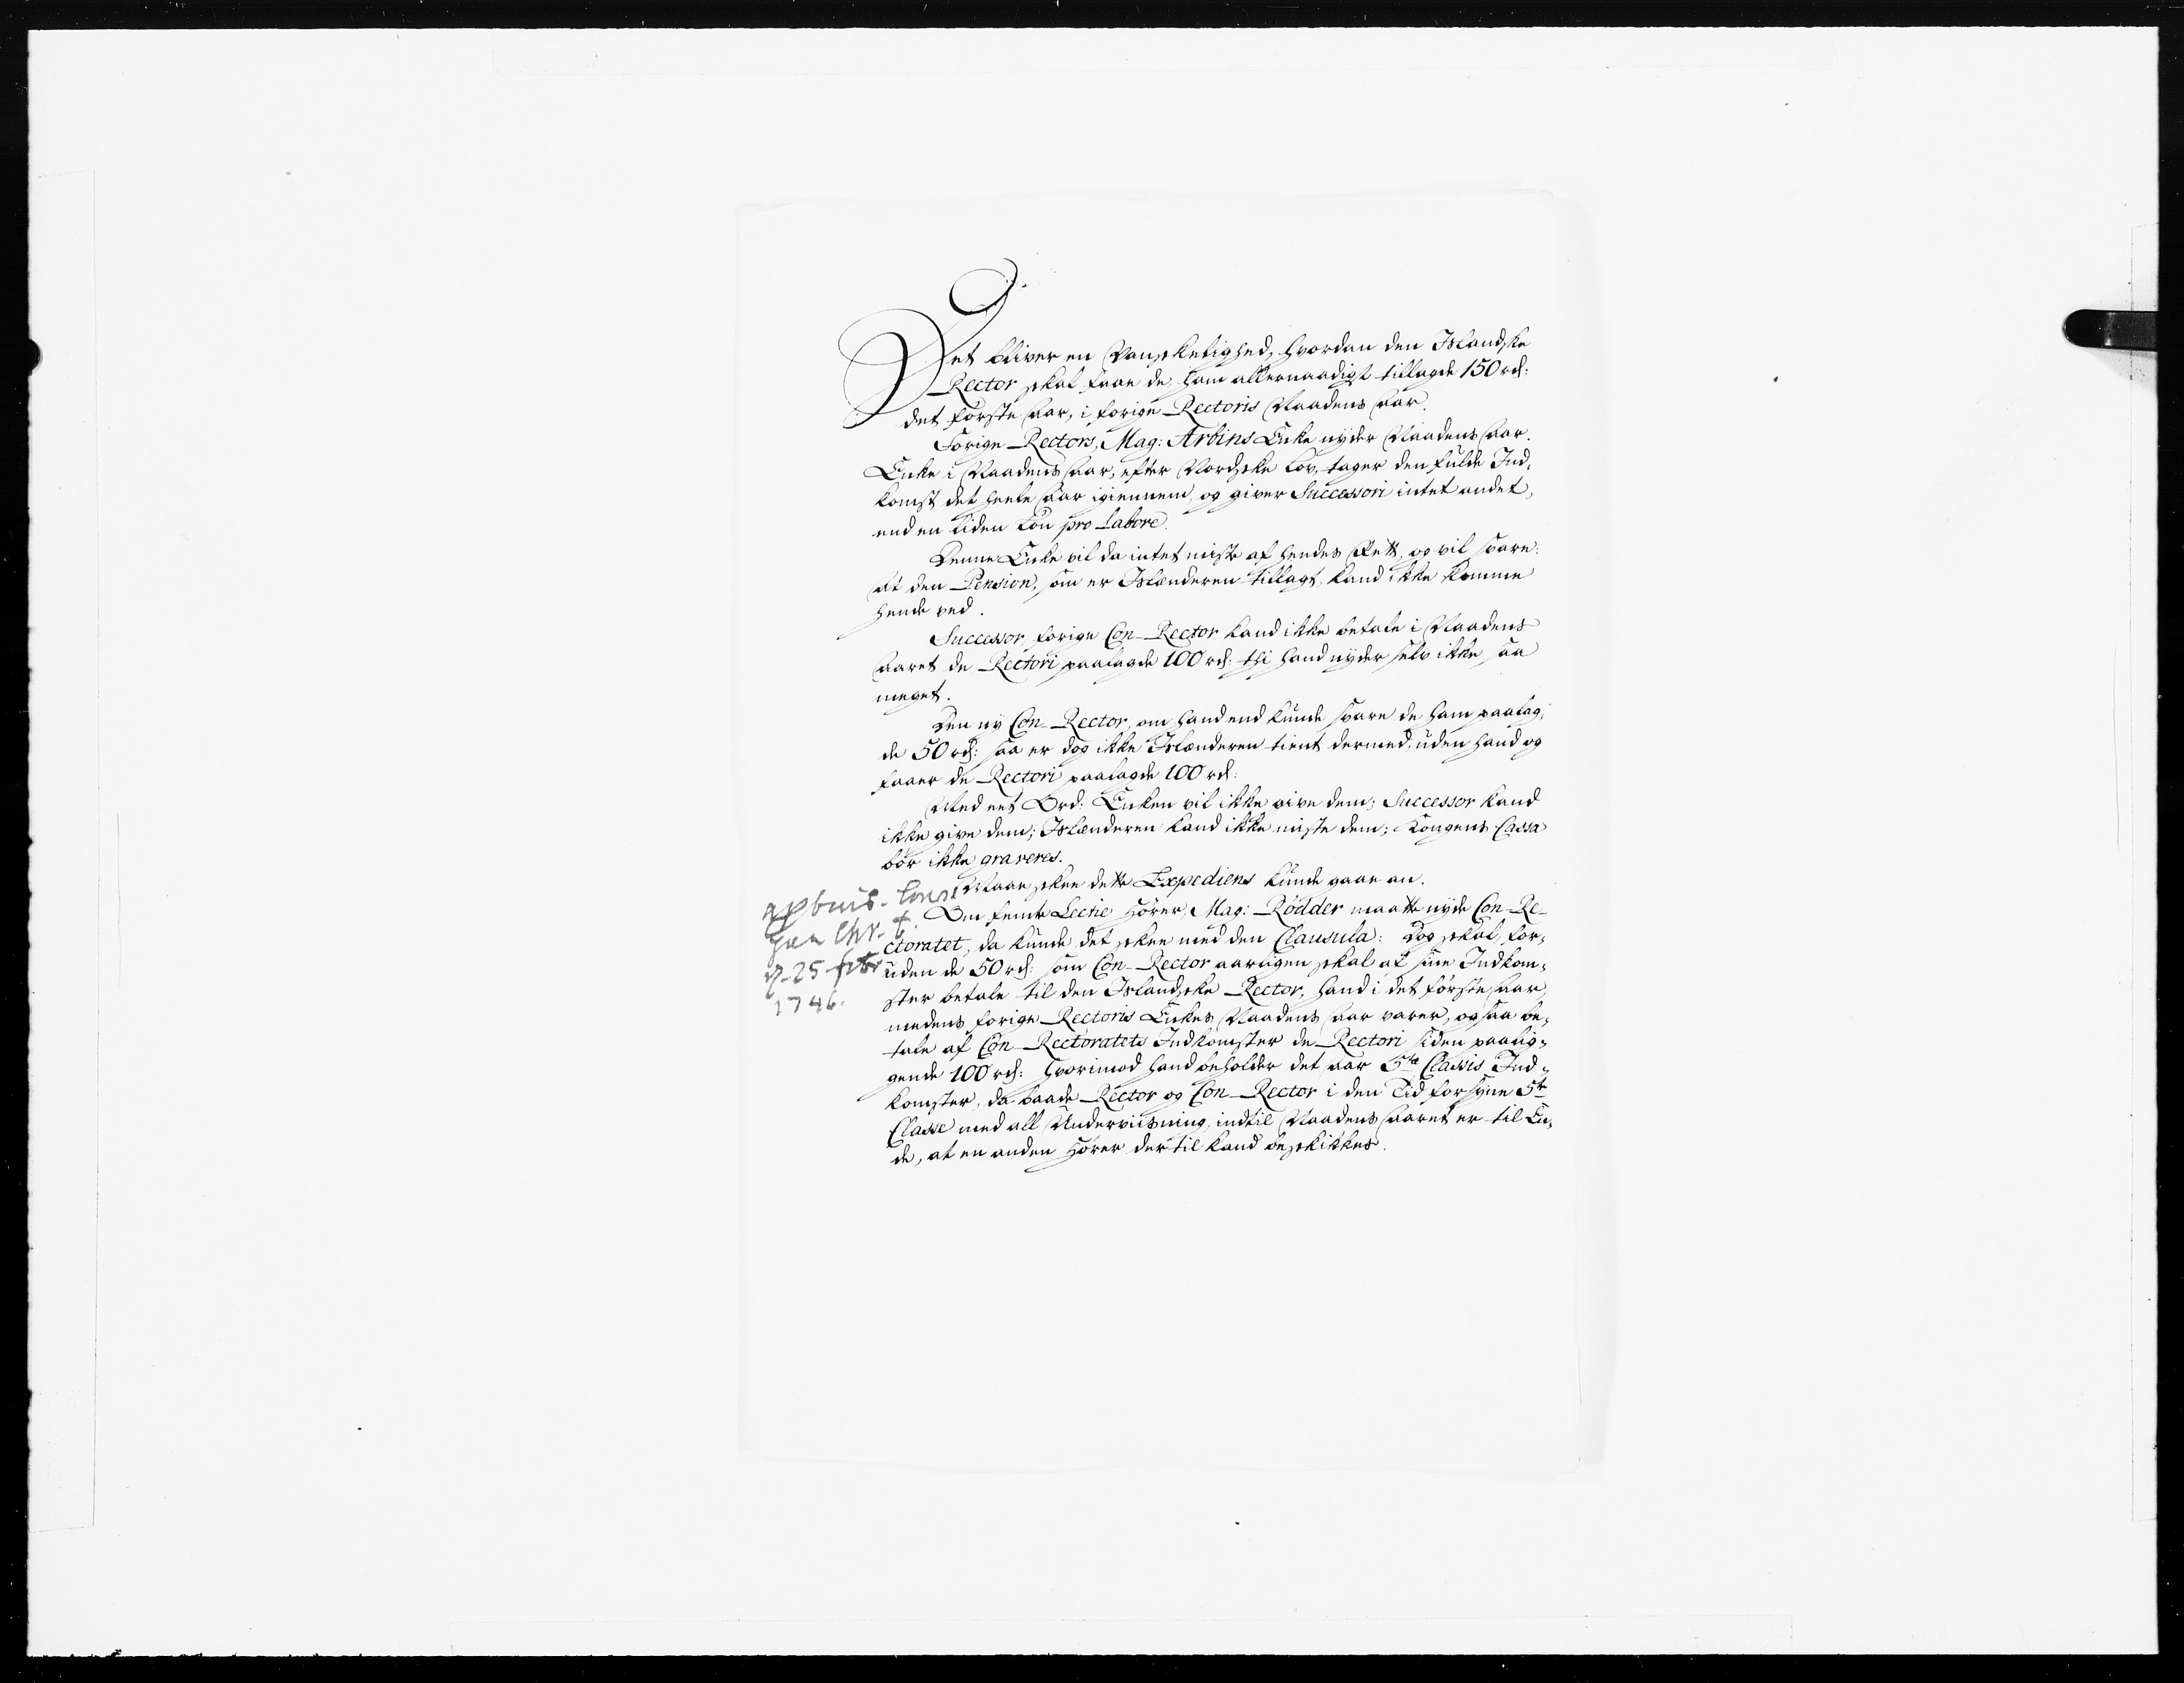 Det bliver en Vanskelighed, hvordan den Islandske
Rector skal faae de ham allernaadigst tillagde 150 rd:
det første Aar, i forige Rectoris Naadens Aar.
Forige Rectors, Mag: Arbins Enke nyder Naadens Aar.
Enke i Naadens Aar, efter Nordske Lov, tager den fulde Ind-
komst det heele Aar igiennem, og giver Successori intet andet,
end en liden Løn pro labore.
Denne Enke vil da intet miste af hendes Rett, og vil svare:
At den Pension, som er Islænderen tillagt, kand ikke komme
hende ved.
Successor, forige Con-Rector kand ikke betale i Naadens
Aaret de Rectori paalagde 100 rd: thi hand nyder selv ikke saa
meget.
Den ny Con-Rector, om hand end kunde svare de ham paalag-
de 50 rd: saa er dog ikke Islænderen tient dermed, uden hand og
faaer de Rectori paalagde 100 rd:
Med eet Ord: Enken vil ikke give dem; Successor kand
ikke give dem; Islænderen kand ikke miste dem; Kongens Cassa
bør ikke graveres.
Maaskee dette Expediens kunde gaae an.
Om femte Lectie Hører, Mag: Rödder maatte nyde Con-Re-
ctoratet, da kunde det skee med den Clausula: Dog skal, for-
uden de 50 rd: som Con-Rector aarligen skal af sine Indkom-
ster betale til den Islandske Rector, hand i det første Aar,
medens forige Rectoris Enkes Naadens Aar varer, og saa be-
tale af Con-Rectoratets Indkomster de Rectori siden paalig-
gende 100 rd: hvorimod hand beholder det Aar 5te Classis Ind-
komster, da baade Rector og Con-Rector i den Tid forsyne 5te
Classe med all Underviisning, indtil Naadens Aaret er til En-
de, at en anden Hører dertil kand beskikkes.
d. 25 febr
1746.